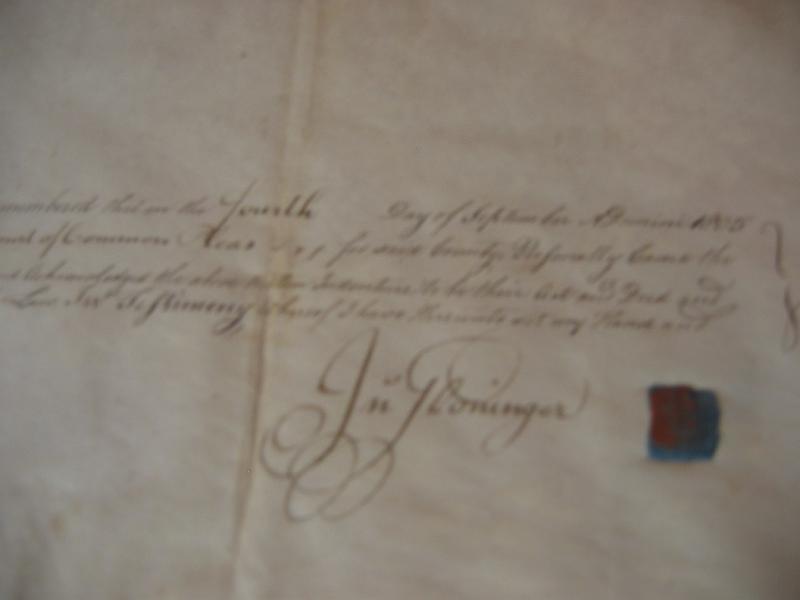 on the Fourth Day of September ADomini 1805
of Common Pleas for said County Personally Came the
Acknowledged the above Indenture to be their Act and Deed and
Law In Testimony whereof I have Hereunto set my Hand and
Jno Gloninger